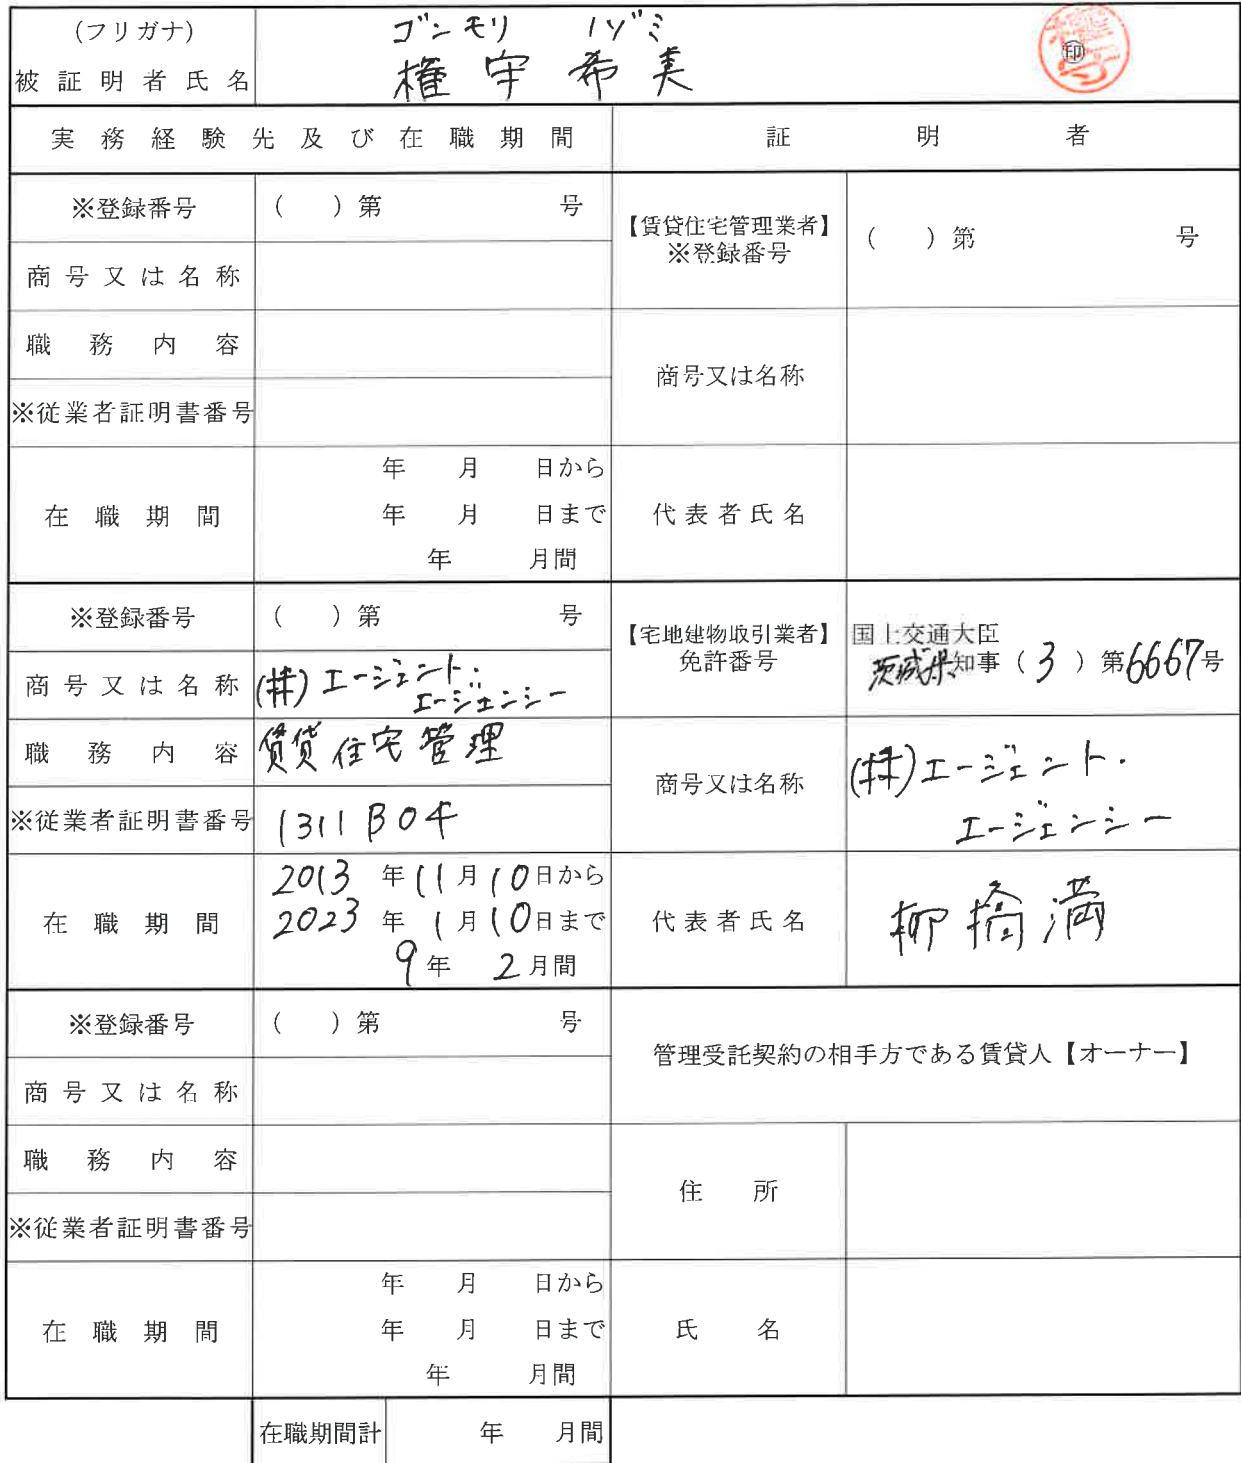 (フリガナ) ゴンモリ ノゾミ
被証明者氏名 権守希美 ㊞
実務経験先及び在職期間 証明者
※登録番号 ( )第 号
【賃貸住宅管理業者】
※登録番号 ( )第 号
商号又は名称
職務内容
商号又は名称
※従業者証明書番号
在職期間
年 月 日から
年 月 日まで
年 月間
代表者氏名
※登録番号 ( )第 号
【宅地建物取引業者】
免許番号
国土交通大臣
茨城県知事(3)第6667号
商号又は名称 (株)エージェント・
エージェンシー
職務内容 賃貸住宅管理
商号又は名称 (株)エージェント・
エージェンシー
※従業者証明書番号 1311B04
在職期間
2013年11月10日から
2023年1月10日まで
9年2月間
代表者氏名 柳橋満
※登録番号 ( )第 号
管理受託契約の相手方である賃貸人【オーナー】
商号又は名称
職務内容
住所
※従業者証明書番号
在職期間
年 月 日から
年 月 日まで
年 月間
氏名
在職期間計 年 月間